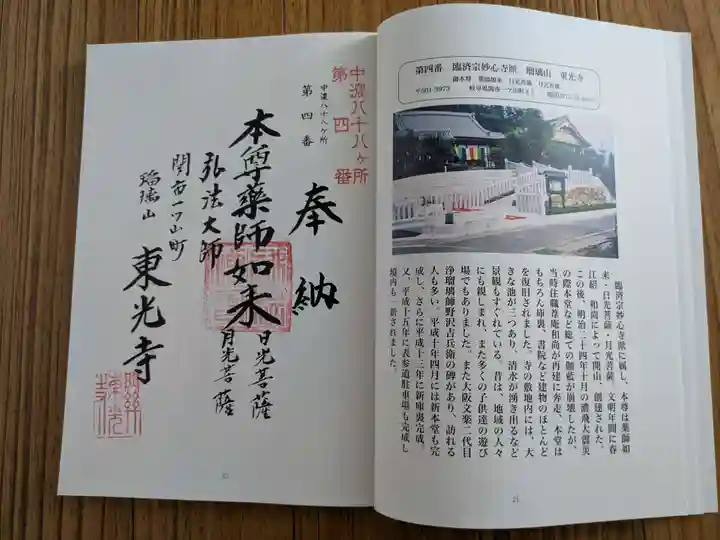 中濃八十八ヶ所
第四番
中濃八十八ヶ所
第四番
奉納
本尊薬師如来
日光菩薩
月光菩薩
弘法大師
関市一ツ山町
瑠璃山
東光寺
20
第四番 臨済宗妙心寺派 瑠璃山 東光寺
御本尊 薬師如来 日光菩薩 月光菩薩
臨済宗妙心寺派に属し、本尊は薬師如
来・日光菩薩・月光菩薩、文明年間に春
江紹 和尚によって開山、創建された。
この後、明治二十四年十月の濃飛大震災
の際本堂など総ての伽藍が崩壊したが、
当時住職葦庵和尚が再建に奔走、本堂は
もちろん庫裏、書院など建物のほとんど
を復旧されました。寺の敷地内には、大
きな池が三つあり、清水が湧き出るなど
景観もすぐれている。昔は、地域の人々
にも親しまれ、また多くの子供達の遊び
場でもありました。また大阪文楽二代目
浄瑠璃師野沢吉兵衛の碑があり、訪れる
人も多い。平成十年四月には新本堂も完
成し、さらに平成十三年に新庫裏完成。
又、平成十五年に表参道駐車場も完成し
境内も一新されました。
21